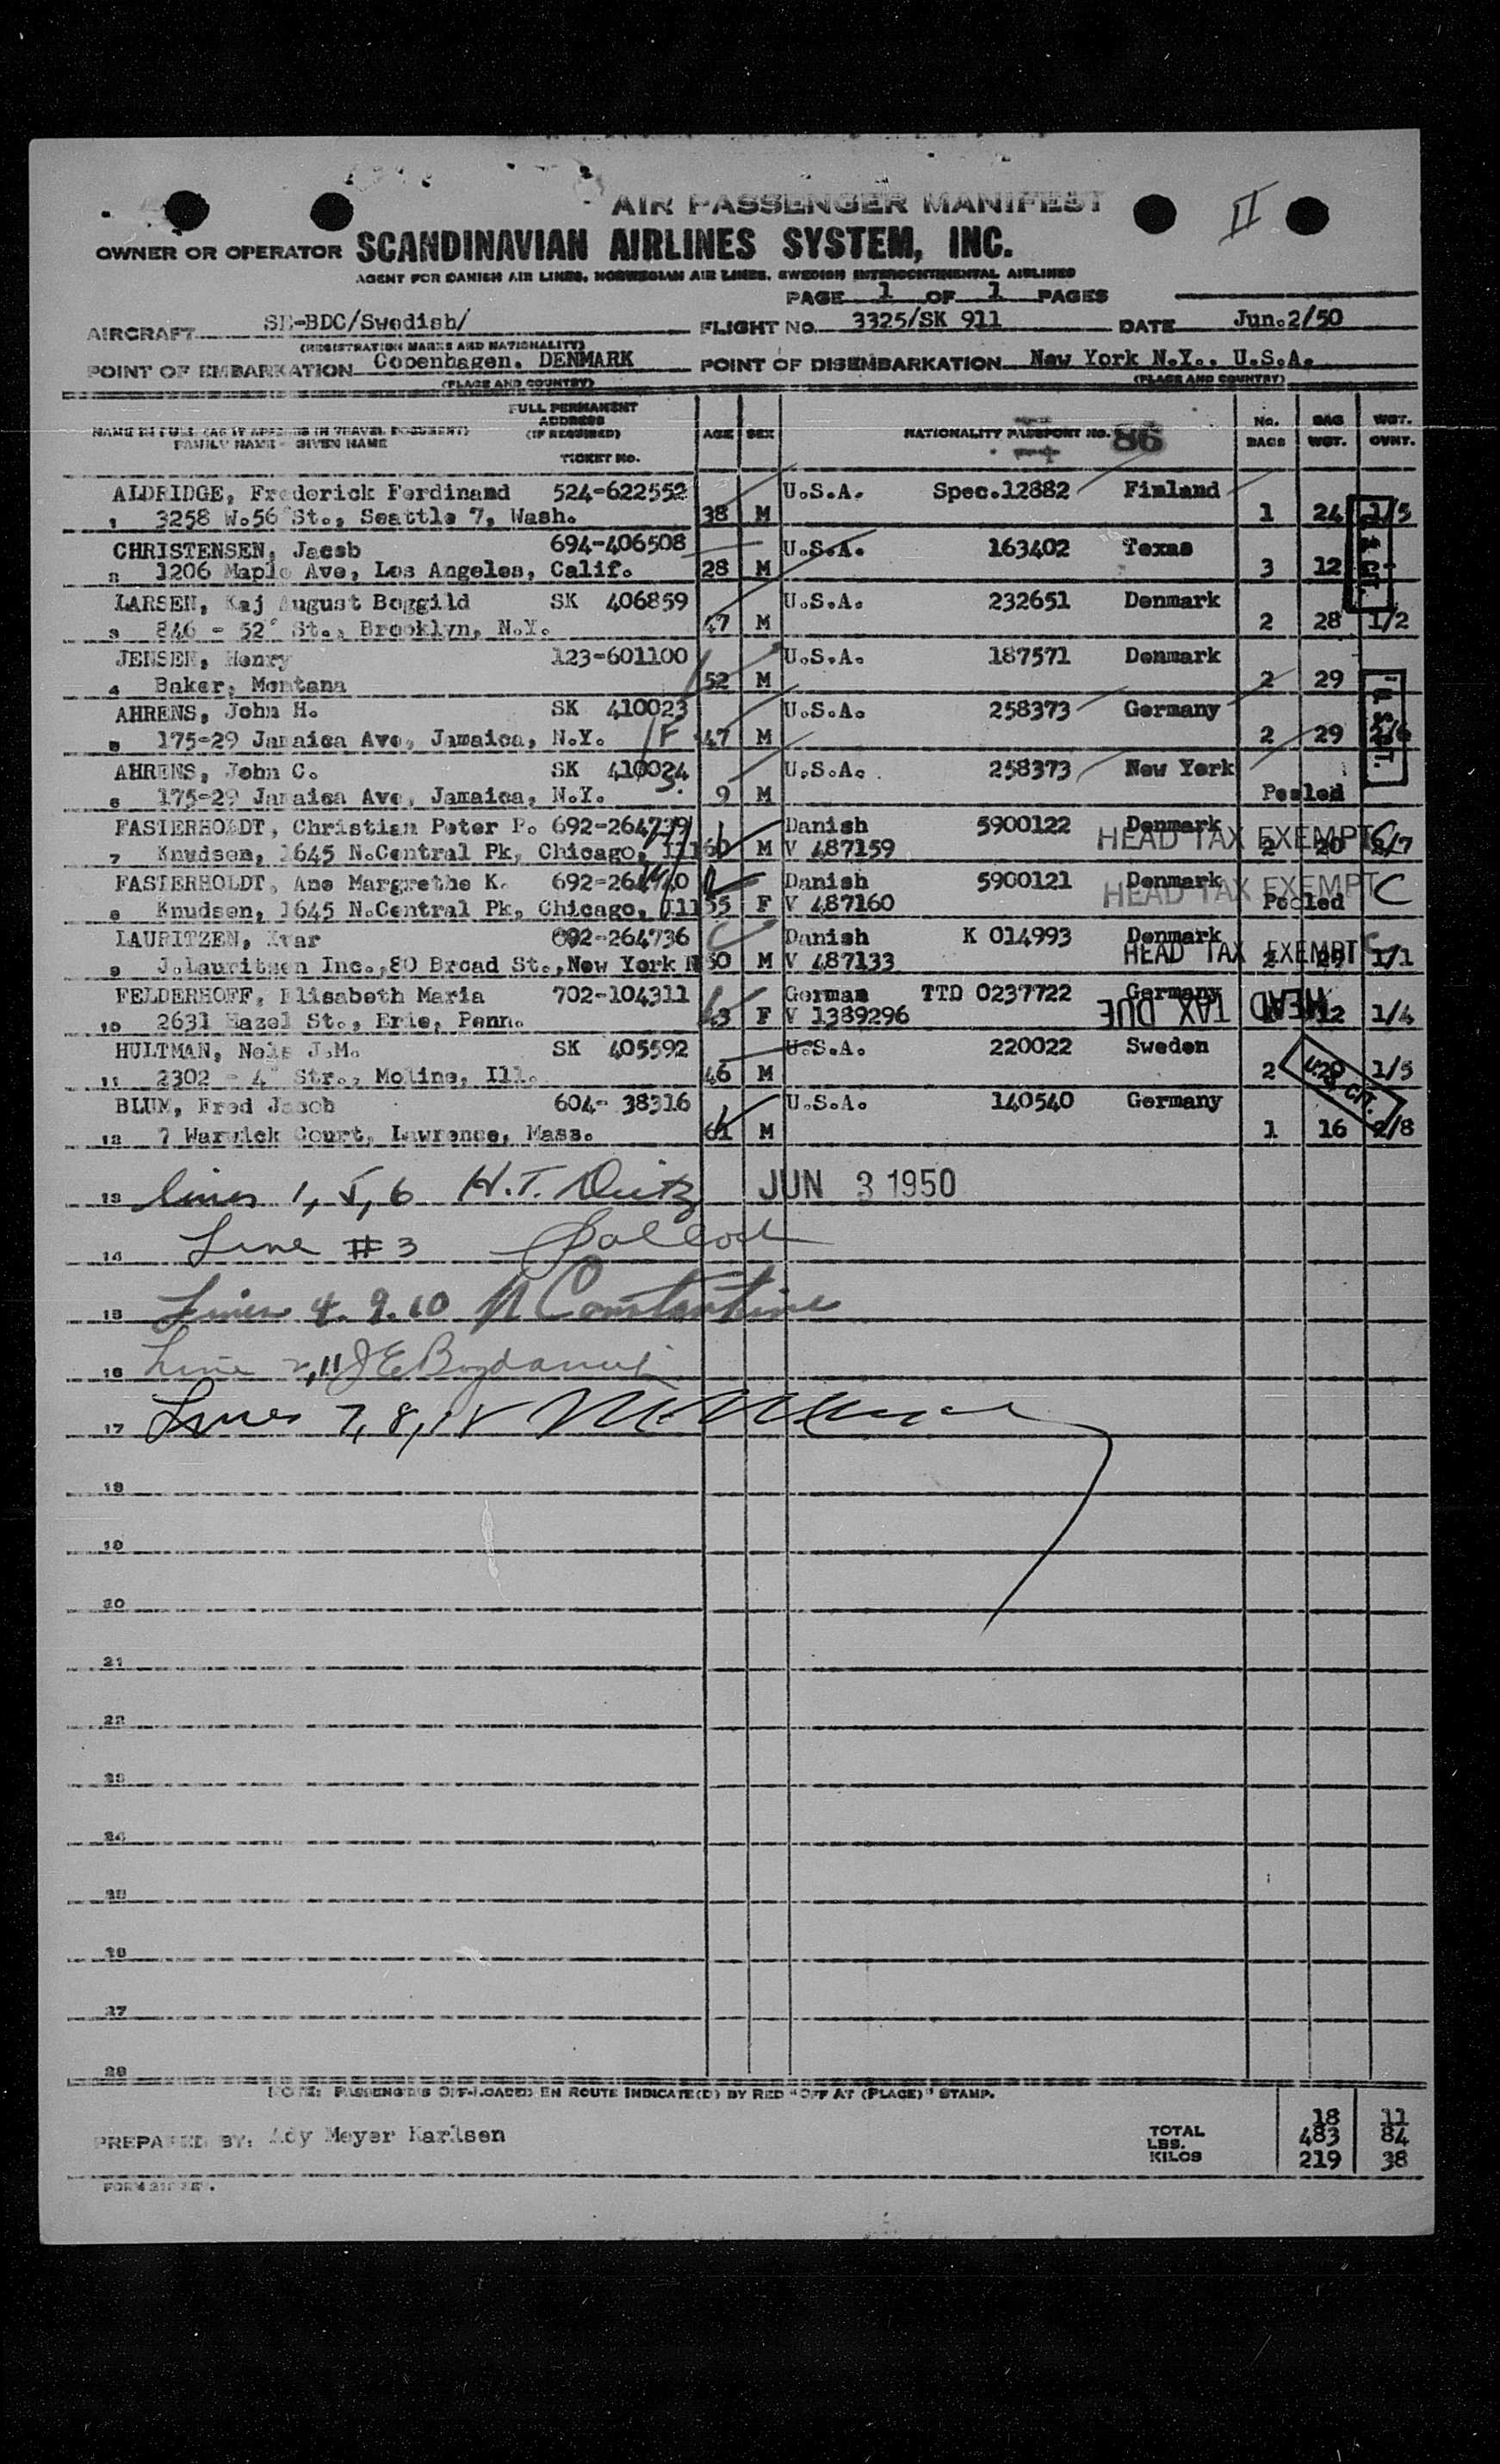 AIR PASSENGER MANIFEST
II
OWNER OR OPERATOR SCANDINAVIAN AIRLINES SYSTEM, INC.
AGENT FOR DANISH AIR LINES, NORWEGIAN AIR LINES, SWEDISH INTERCONTINENTAL AIRLINES
PAGE 1 OF 1 PAGES
AIRCRAFT SE-BDC/Swedish/ FLIGHT No. 3325/SK 911 DATE Jun.2/50
(REGISTRATION MARKS AND NATIONALITY)
POINT OF EMBARKATION Copenhagen, DENMARK POINT OF DISEMBARKATION New York N.Y., U.S.A.
(PLACE AND COUNTRY) (PLACE AND COUNTRY)
NAME IN FULL (AS IT APPEARS IN TRAVEL DOCUMENT) FAMILY NAME - GIVEN NAME FULL PERMANENT ADDRESS (IF REQUIRED) TICKET No. AGE SEX NATIONALITY PASSPORT NO. 86 No. BAGS BAG WGT. WGT. OVNT.
ALDRIDGE, Frederick Ferdinand 524-622552 U.S.A. Spec.12882 Finland
1 3258 W.56 St., Seattle 7, Wash. 38 M 1 24 1/5
CHRISTENSEN, Jacob 694-406508 U.S.A. 163402 Texas
2 1206 Maple Ave, Los Angeles, Calif. 28 M 3 12
LARSEN, Kaj August Boggild SK 406859 U.S.A. 232651 Denmark
3 846 - 52" St., Brooklyn, N.Y. 47 M 2 28 1/2
JENSEN, Henry 123-601100 U.S.A. 187571 Denmark
4 Baker, Montana 52 M 2 29
AHRENS, John H. SK 410023 U.S.A. 258373 Germany
5 175-29 Jamaica Ave, Jamaica, N.Y. 47 M 2 29
AHRENS, John C. SK 410024 U.S.A. 258373 New York
6 175-29 Jamaica Ave, Jamaica, N.Y. 9 M Pooled
FASTERHOLDT, Christian Peter P. 692-264739 Danish 5900122 Denmark HEAD TAX EXEMPT
7 Knudsen, 1645 N.Central Pk, Chicago, Ill 60 M V 487159 2 20
FASTERHOLDT, Ane Margrethe K. 692-264740 Danish 5900121 Denmark HEAD TAX EXEMPT C
8 Knudsen, 1645 N.Central Pk, Chicago, Ill 55 F V 487160 Pooled
LAURITZEN, Ivar 692-264736 Danish K 014993 Denmark HEAD TAX EXEMPT
9 J.Lauritzen Inc.,80 Broad St.,New York N 50 M V 487133 1/1
FELDERHOFF, Elisabeth Maria 702-104311 German TTD 0237722 Germany HEAD TAX DUE
10 2631 Hazel St., Erie, Penn. 43 F V 1389296 12 1/4
HULTMAN, Nels J.M. SK 405592 U.S.A. 220022 Sweden
11 2302 - 4" Str., Moline, Ill. 46 M 2 1/5
U.S. CIT.
BLUM, Fred Jacob 604- 38316 U.S.A. 140540 Germany
12 7 Warwick Court, Lawrence, Mass. 61 M 1 16 2/8
13 lines 1, 5, 6 H.T. Dietz JUN 3 1950
14 Line #3
15 Lines 4. 9. 10 N Constantine
16 Line 2,11
17 Lines 7, 8, 12
18
19
20
21
22
23
24
25
26
27
28
NOTE: PASSENGERS OFF-LOADED EN ROUTE INDICATE(D) BY RED "OFF AT (PLACE)" STAMP.
PREPARED BY: Ady Meyer Karlsen
TOTAL 18 11
LBS. 483 84
KILOS 219 38